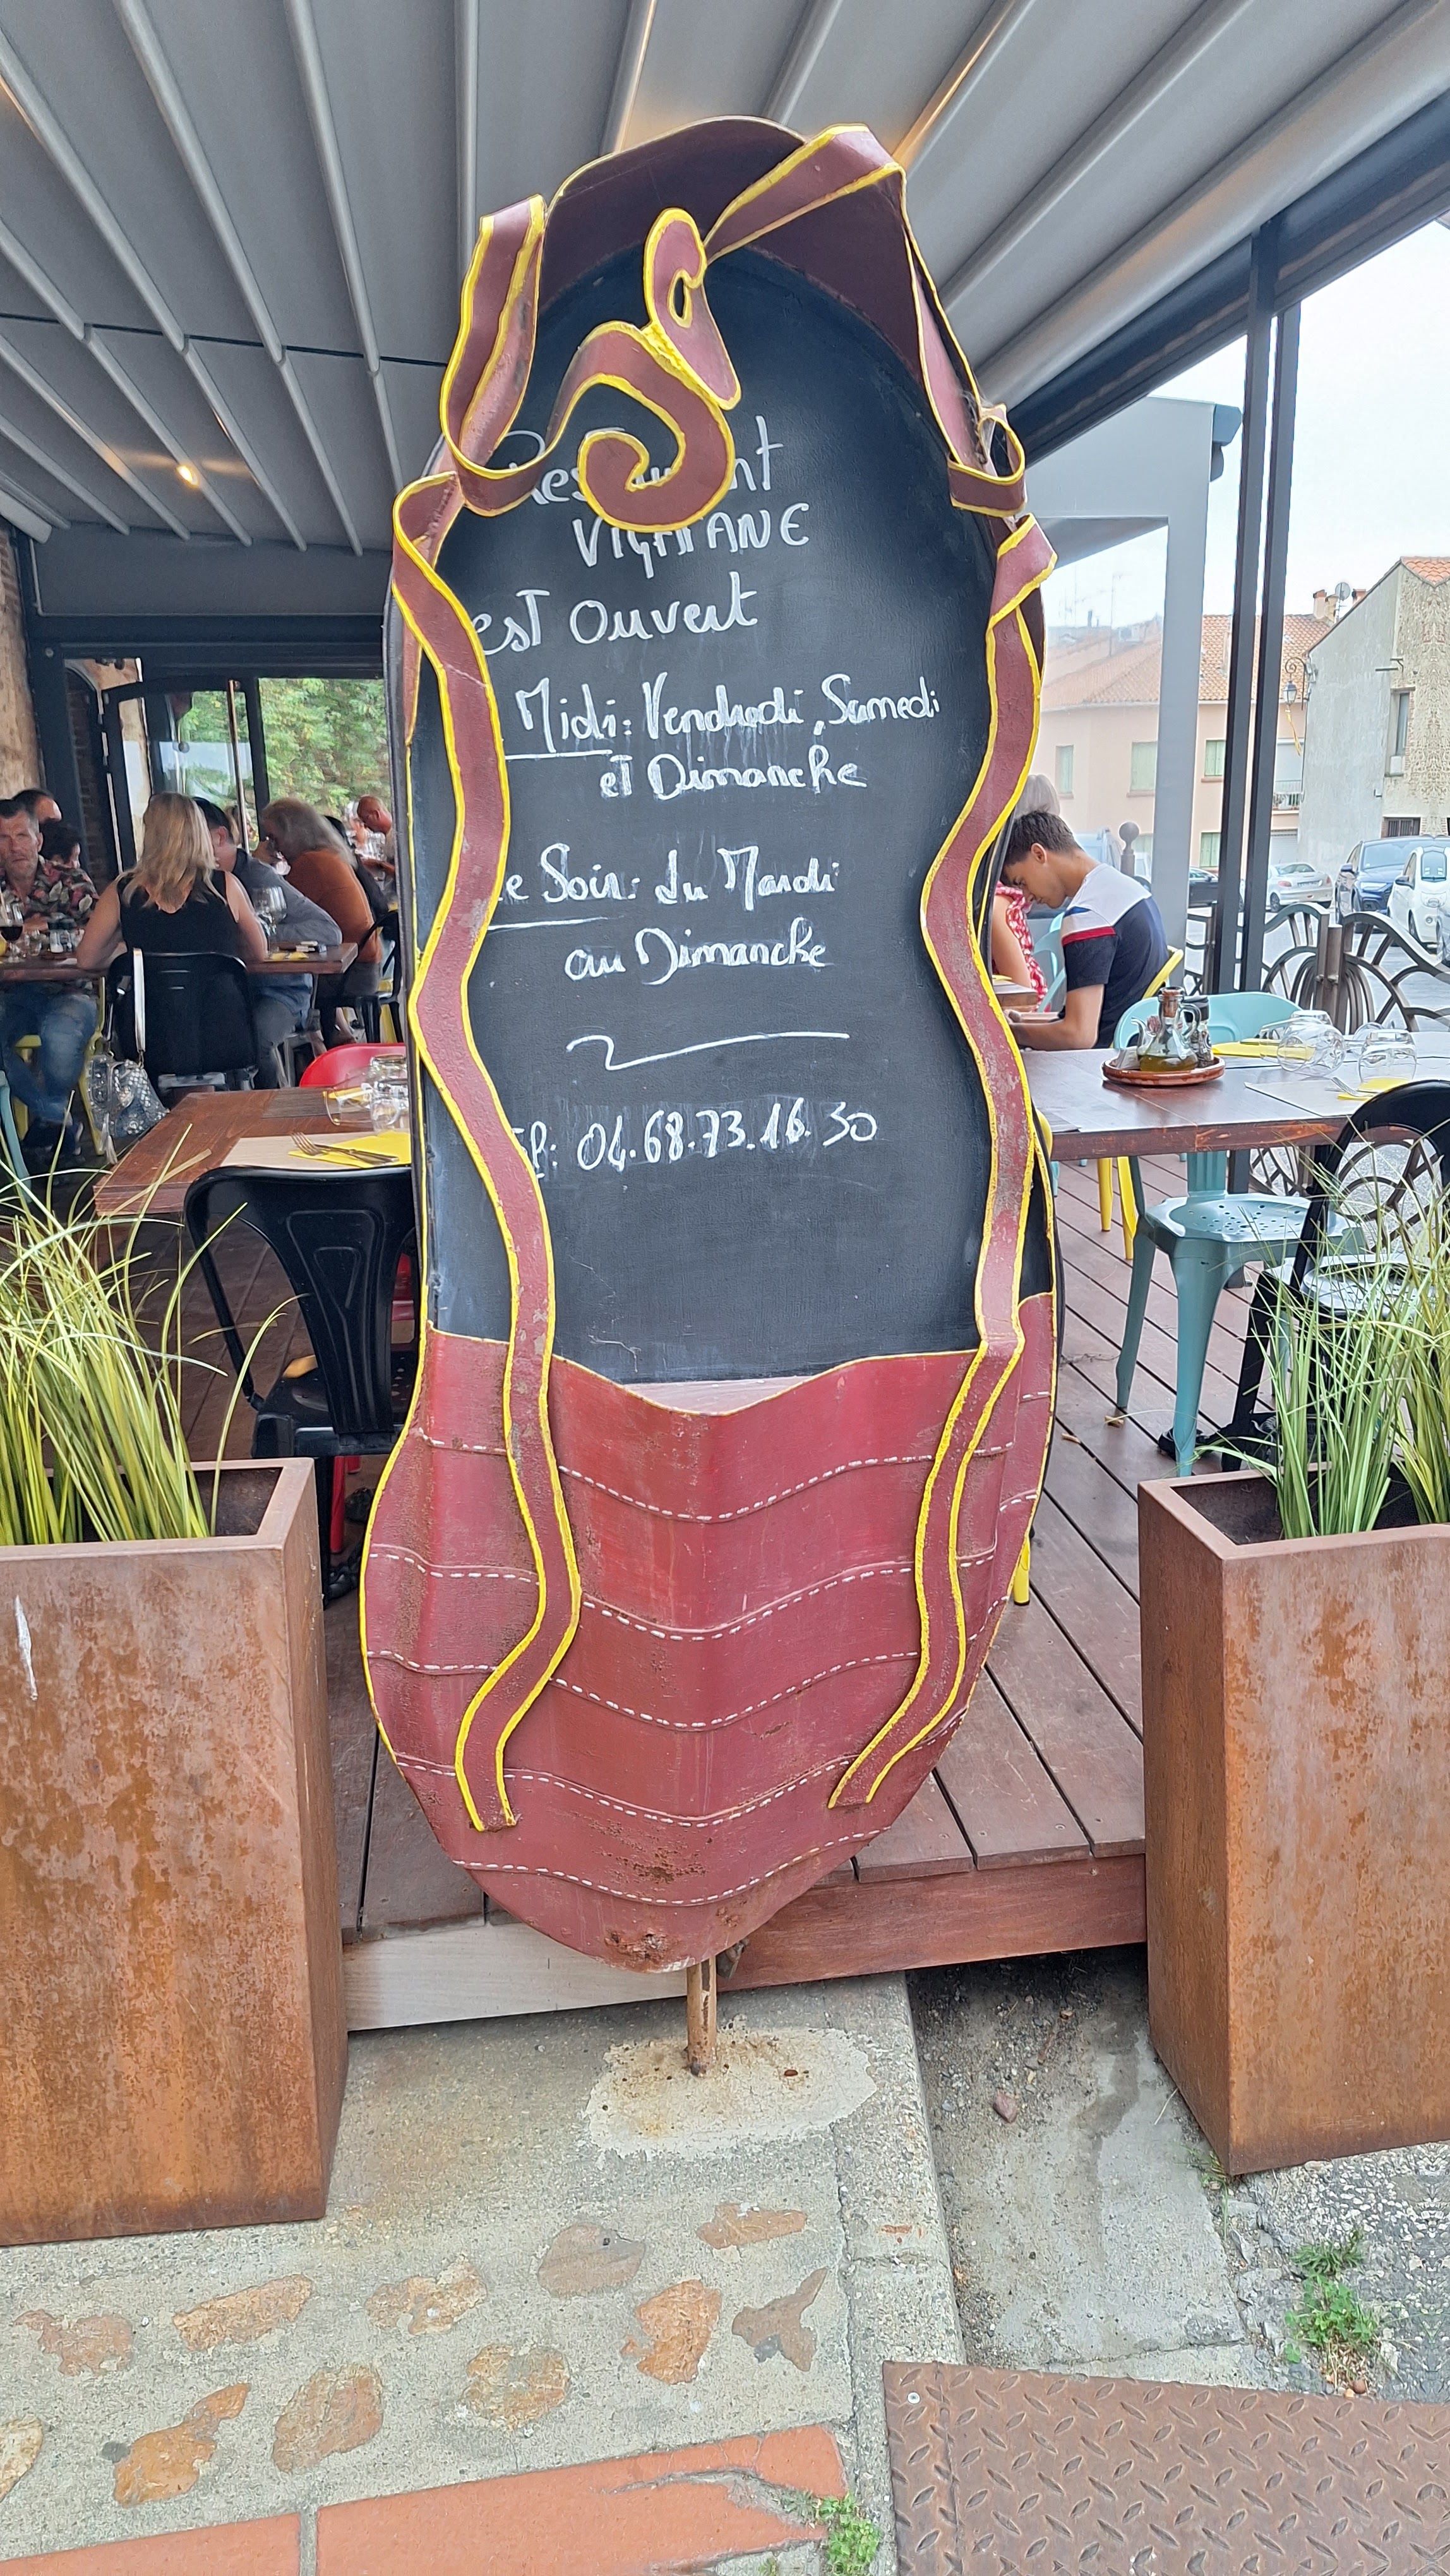 Restaurant
VIGATANE
est Ouvert
Midi: Vendredi, Samedi
et Dimanche
Le Soir: du Mardi
au Dimanche
Tél: 04.68.73.16.30